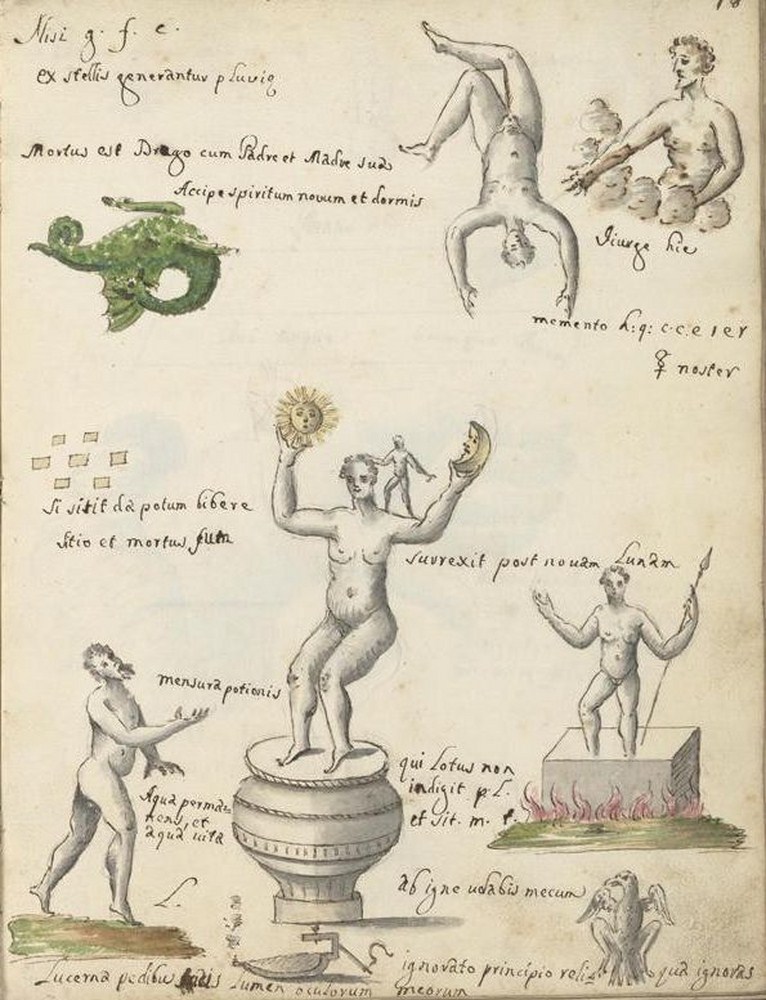 18
Nisi g. f. c.
ex stellis generantur pluvię
Mortus est Drago cum Padre et Madre sua
Accipe spiritum novum et dormis
Jiurge hie
memento h: q: c. c. e 1 e r
☿ noster
si sitit da potum bibere
sitio et mortus sum
surrexit post novam Lunam
mensura potionis
Aqua perma=
nens, et
aqua vita
qui Lotus non
indigit p. L.
et sit. m. f.
L.
ab igne udabis mecum
Lucerna pedibus
Lumen oculorum meorum
ignorato principio qua ignoras